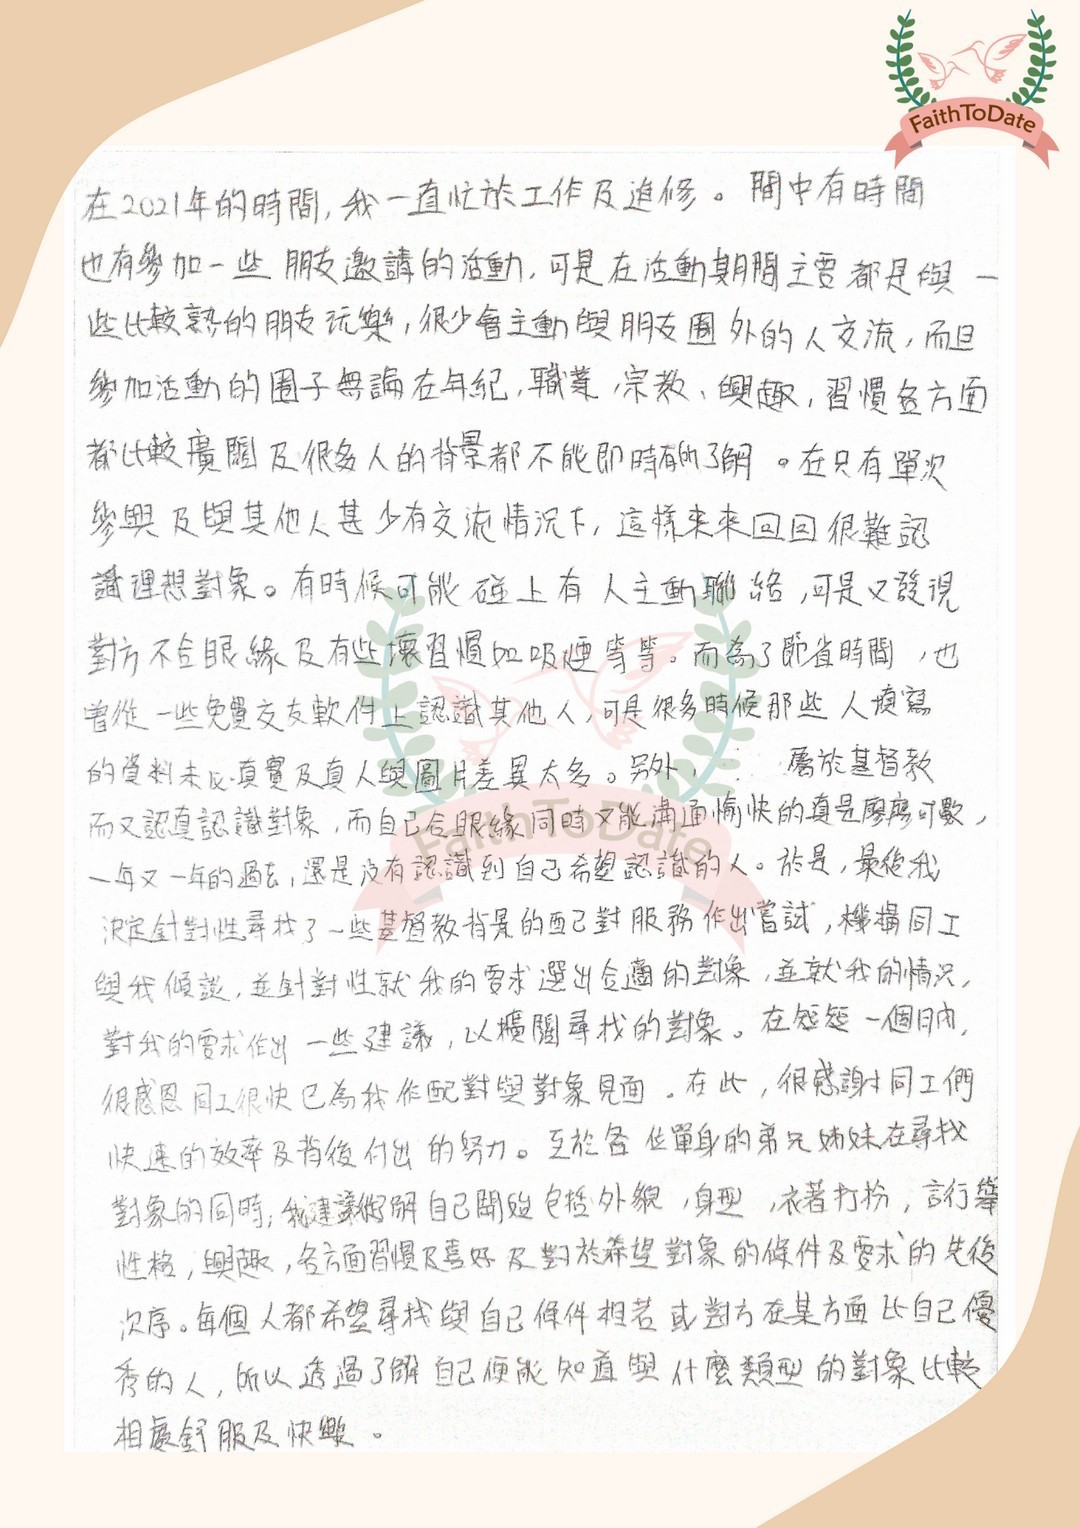 FaithToDate
在2021年的時間, 我一直忙於工作及進修。間中有時間
也有參加一些朋友邀請的活動, 可是在活動期間主要都是與一
些比較熟的朋友玩樂, 很少會主動與朋友圈外的人交流, 而且
參加活動的圈子無論在年紀, 職業, 宗教、興趣, 習慣各方面
都比較廣闊及很多人的背景都不能即時有的了解。在只有單次
參與及與其他人甚少有交流情況下, 這樣來來回回很難認
識理想對象。有時候可能碰上有人主動聯絡, 可是又發現
對方不合眼緣及有些壞習慣如吸煙等等。而為了節省時間, 也
曾從一些免費交友軟件上認識其他人, 可是很多時候那些人填寫
的資料未必真實及真人與圖片差異太多。另外, 屬於基督教
而又認真認識對象, 而自己合眼緣同時又能溝通愉快的真是廖廖可數,
一年又一年的過去, 還是沒有認識到自己希望認識的人。於是, 最後我
決定針對性尋找了一些基督教背景的配對服務作出嘗試, 機構同工
與我傾談, 並針對性就我的要求選出合適的對象, 並就我的情況,
對我的要求作出一些建議, 以擴闊尋找的對象。在短短一個月內,
很感恩同工很快已為我作配對與對象見面。在此, 很感謝同工們
快速的效率及背後付出的努力。至於各位單身的弟兄姊妹在尋找
對象的同時, 我建議從了解自己開始包括外貌, 身型, 衣著打扮, 言行舉
性格, 興趣, 各方面習慣及喜好及對於希望對象的條件及要求的先後
次序。每個人都希望尋找與自己條件相若或對方在某方面比自己優
秀的人, 所以透過了解自己便能知道與什麼類型的對象比較
相處舒服及快樂。
FaithToDate